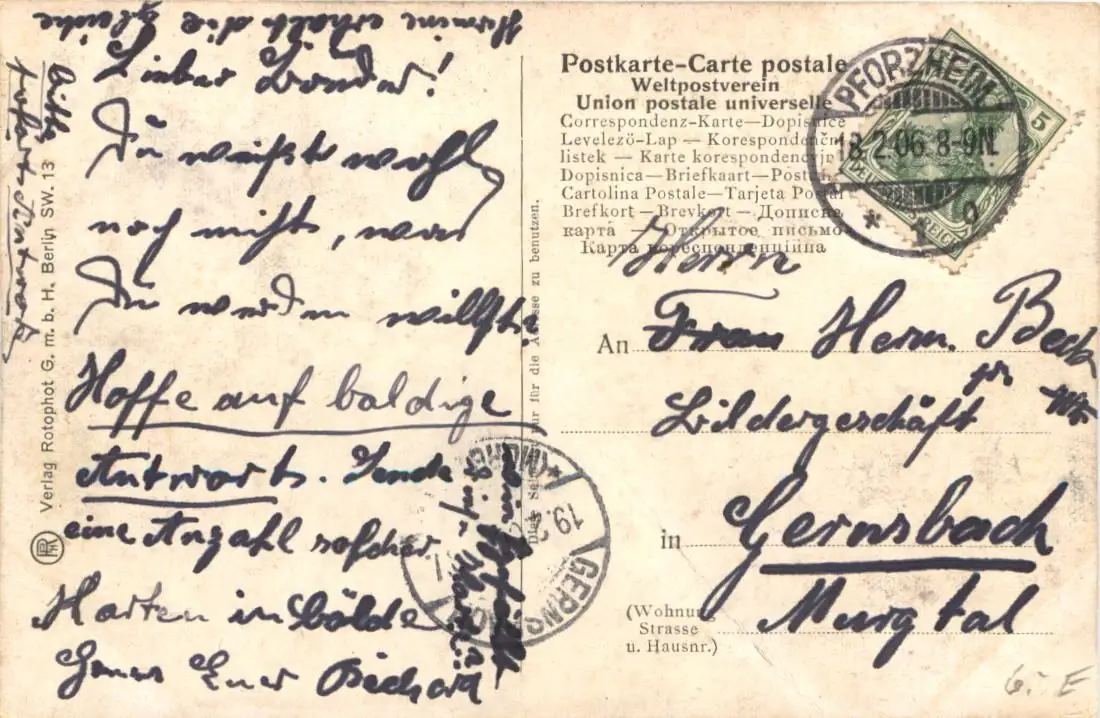 Hermine erhält die Gleiche
Bitte
sofort Antwort
Lieber
Du weißt wohl
noch nicht, was
Du werden willst?
Hoffe auf baldige
Antwort. Sende
eine Anzahl solcher
Karten in Bälde
Gruss Euer Richard
Verlag Rotophot G. m. b. H. Berlin SW. 13
RPH
Diese Seite nur für die Adresse zu benutzen.
Postkarte—Carte postale
Weltpostverein
Union postale universelle
Correspondenz-Karte—Dopisnice
Levelezö-Lap — Korespondenční
listek — Karte korespondencyjna
Dopisnica—Briefkaart—Postkarta
Cartolina Postale—Tarjeta Postal
Brefkort — Brevkort — Дописна
карта — Открытое письмо
Карта кореспонденційна
PFORZHEIM
18.2.06.8-9N.
5
DEUTSCHES REICH
Herrn
An Frau Herm.
Bildergeschäft
in Gernsbach
Murgtal
(Wohnung
Strasse
u. Hausnr.)
19.
GERNSBACH
(MURGTHAL)
6.- E